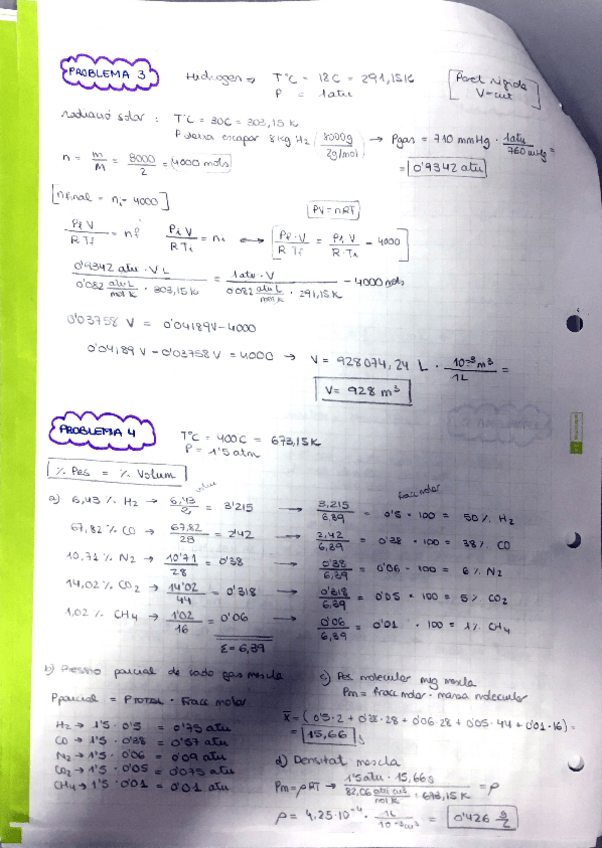 PROBLEMA 3
Hidrogen → T°C = 18C = 291,15K
P = 1atm
[Paret rígida V=cnt]
radiació solar : T°C = 30C = 303,15 K
P deixa escapar 8kg H2 (8000g / 2g/mol) → Pgas = 710 mmHg · 1atm / 760 mmHg =
= 0'9342 atm
n = m/M = 8000/2 = 4000 mols
[nfinal = ni - 4000]
PV = nRT
Pf V / R Tf = nf Pi V / R Ti = ni ⟷ [Pf · V / R Tf = Pi V / R · Ti - 4000]
0'9342 atm · V L / 0'082 atm·L/mol K · 303,15K = 1atm · V / 0'082 atm·L/mol K · 291,15K - 4000 mols
0'03758 V = 0'04189V - 4000
0'04189 V - 0'03758 V = 4000 → V = 928074,24 L · 10⁻³ m³ / 1L =
V = 928 m³
PROBLEMA 4
T°C = 400C = 673,15K
P = 1'5 atm
% Pes = % Volum
a) 6,43 % H2 → 6,43/2 = 3'215 → 3,215/6,39 = 0'5 · 100 = 50 % H2
67,82 % CO → 67,82/28 = 2'42 → 2,42/6,39 = 0'38 · 100 = 38 % CO
10,71 % N2 → 10'71/28 = 0'38 → 0'38/6,39 = 0'06 · 100 = 6 % N2
14,02 % CO2 → 14'02/44 = 0'318 → 0'318/6,39 = 0'05 · 100 = 5 % CO2
1,02 % CH4 → 1'02/16 = 0'06 → 0'06/6,39 = 0'01 · 100 = 1 % CH4
Σ = 6,39
b) Pressió parcial de cada gas mescla
Pparcial = PTOTAL · Fracc molar
H2 → 1'5 · 0'5 = 0'75 atm
CO → 1'5 · 0'38 = 0'57 atm
N2 → 1'5 · 0'06 = 0'09 atm
CO2 → 1'5 · 0'05 = 0'075 atm
CH4 → 1'5 · 0'01 = 0'01 atm
c) Pes molecular mig mescla
Pm = fracc molar · massa molecular
x̄ = (0'5 · 2 + 0'38 · 28 + 0'06 · 28 + 0'05 · 44 + 0'01 · 16) =
= 15,66 g
d) Densitat mescla
Pm = ρRT → 1'5 atm · 15,66g / 82,06 atm cm³/mol K · 673,15K = ρ
ρ = 4,25·10⁻⁴ · 1L / 10⁻³cm³ = 0'426 g/L